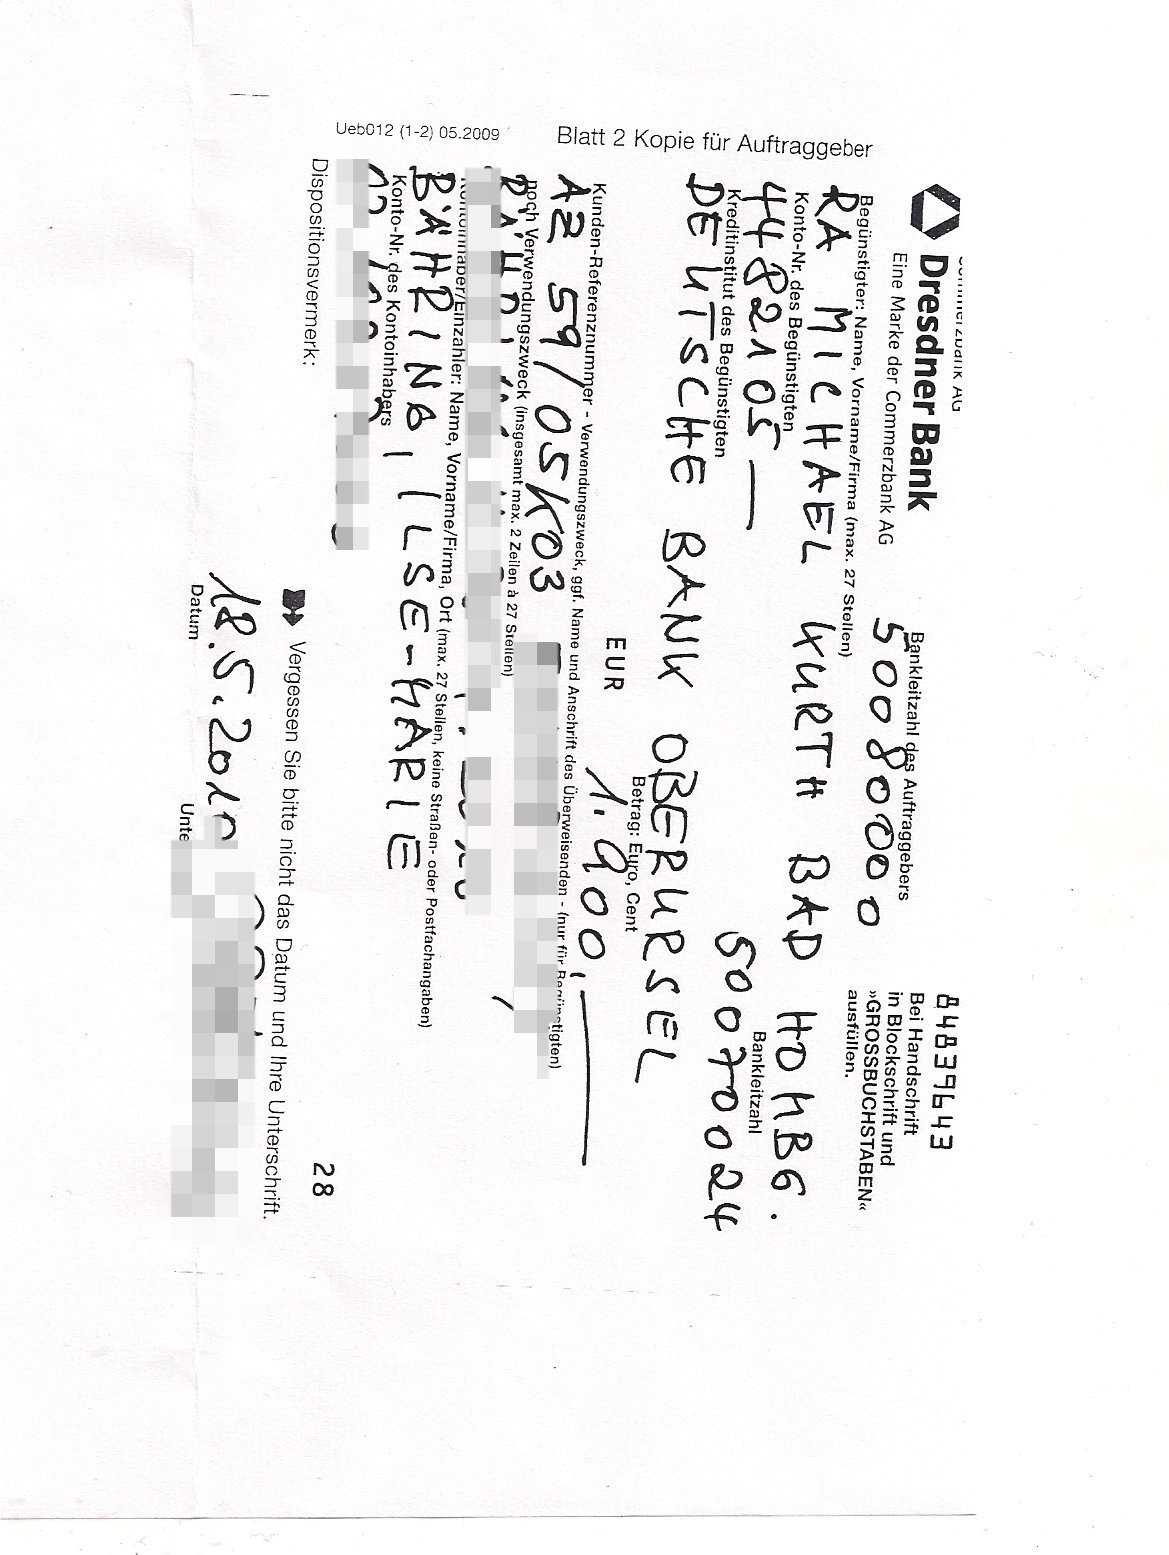 Commerzbank AG
Dresdner Bank
Eine Marke der Commerzbank AG
84839643
Bei Handschrift
in Blockschrift und
»GROSSBUCHSTABEN«
ausfüllen.
Bankleitzahl des Auftraggebers
50080000
Begünstigter: Name, Vorname/Firma (max. 27 Stellen)
RA MICHAEL KURTH BAD HOMBG.
Konto-Nr. des Begünstigten
Bankleitzahl
4482105 —
50070024
Kreditinstitut des Begünstigten
DEUTSCHE BANK OBERURSEL
Betrag: Euro, Cent
EUR
1.900,—
Kunden-Referenznummer - Verwendungszweck, ggf. Name und Anschrift des Überweisenden - (nur für Begünstigten)
AZ 59/05K03
noch Verwendungszweck (insgesamt max. 2 Zeilen à 27 Stellen)
Kontoinhaber/Einzahler: Name, Vorname/Firma, Ort (max. 27 Stellen, keine Straßen- oder Postfachangaben)
BÄHRING, ILSE-MARIE
Konto-Nr. des Kontoinhabers
28
Dispositionsvermerk:
Vergessen Sie bitte nicht das Datum und Ihre Unterschrift.
18.5.2010
Datum
Unte
Blatt 2 Kopie für Auftraggeber
Ueb012 (1-2) 05.2009